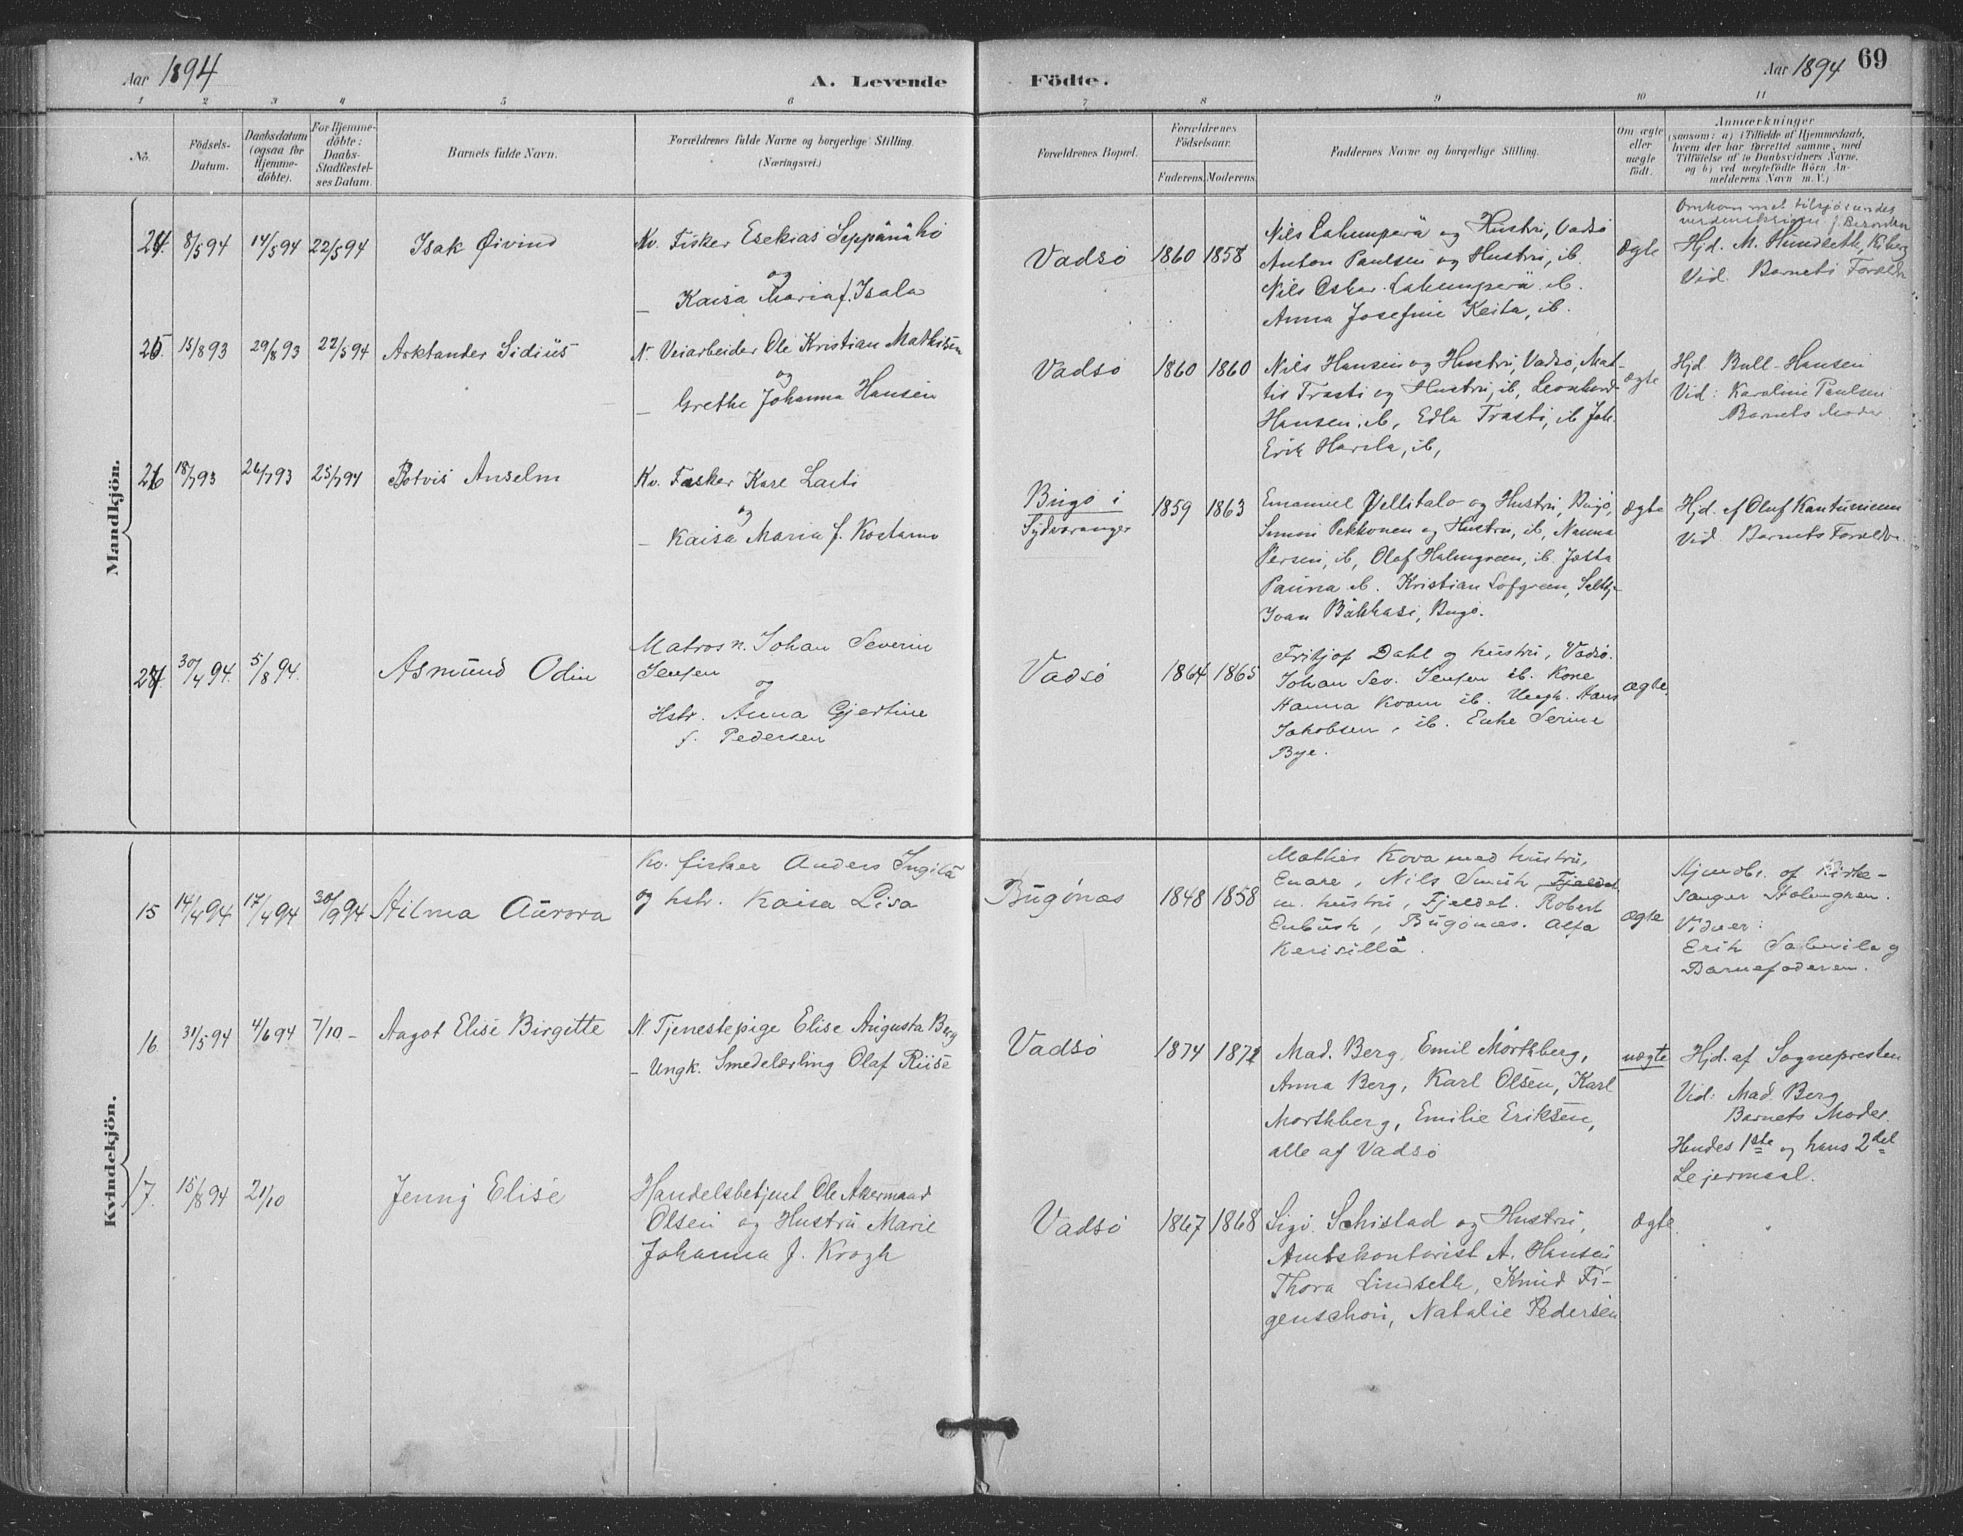 Aar 1894
A. Levende
Födte.
Aar 1894 69
1 2 3 4 5 6 7 8 9 10 11
No.
Födsels-
Datum.
Daabsdatum
(ogsaa for
Hjemme-
döbte).
For Hjemme-
döbte:
Daabs-
Stadfæstel-
ses Datum.
Barnets fulde Navn.
Forældrenes fulde Navne og borgerlige Stilling.
(Næringsvei.)
Forældrenes Bopæl.
Forældrenes
Födselsaar.
Faderens. Moderens.
Faddernes Navne og borgerlige Stilling.
Om ægte
eller
uægte
födt.
Anmærkninger
(saasom: a) i Tilfælde af Hjemmedaab,
hvem der har forrettet samme, med
Tilföielse af to Daabsvidners Navne,
og b) ved uægtefödte Börn An-
melderens Navn m.V.)
Mandkjön.
24. 8/5 94 14/5 94 22/5 94 Isak Øivind
Kv. Fisker Esekias Seppänäho
og
_ Kaisa Maria f. Isala
Vadsö 1860 1858
Nils Lahenperä og Hustru, Vadsö
Anton Paulsen og Hustru, ib.
Nils Oskar Lahenperä ib.
Anna Josefine Keita, ib.
Ægte
Omkom met tilsjös undes
verdenskrigen
Hjd. M. Hundseth, Kiberg
Vid. Barnets Foræld
25. 15/8 93 29/8 93 22/5 94 Arktander Sidius
N. Veiarbeider Ole Kristian Mathisen
og
_ Grethe Johanna Hansen
Vadsö 1860 1860
Nils Hansen og Hustru, Vadsö, Mat-
tis Trasti og Hustru, ib, Leonhard
Hansen, ib, Edla Trasti, ib Joh.
Erik Harila, ib,
ægte
Hjd Bull-Hansen
Vid: Karoline Paulsen
Barnets Moder.
26 18/7 93 26/7 93 25/7 94 Botvis Anselm
Kv. Fisker Karl Lasti
og
_ Kaisa Maria f. Kostamo
Bugö i
Sydvaranger
1859 1863
Emanuel Yellitalo og Hustru, Bugö,
Simon Pekkonen og Hustru, ib, Nanna
Persen, ib, Olaf Holmgreen, ib. Jotta
Pauna ib. Kristian Lofgreen,
Ivan Bäkkasi, Bugö.
Ægte
Hjd. af Oluf
Vid. Barnets Forældr.
27. 30/4 94. 5/8 94. Asmund Odin
Matros n. Johan Severin
Jensen
og
Hstr. Anna Gjertine
f. Pedersen
Vadsö 1864 1865
Fritjof Dahl og hustru, Vadsö.
Johan Sev. Jensen ib. Kone
Hanna Kvam ib. Ungk. Hans
Jakobsen, ib. Enke Serine
Bye.
ægte.
Kvindekjön.
15 14/4 94 17/4 94 30/9 94 Hilma Aurora
Kv. fisker Anders Ingilä
og hstr. Kaisa Lisa
Bugönæs 1848 1858
Mathis Kova med hustru,
Enare, Nils Smuk, Fjeldet
m. hustru, Fjeldet. Robert
Enbusk, Bugönæs. Alfa
Kerisillä.
ægte
Hjemdbt. af Kirke-
sanger Holmgren.
Vidner:
Erik og
Barnefaderen.
16 31/5 94 4/6 94 7/10 - Aagot Elise Birgitte
N. Tjenestepige Elise Augusta Berg
- Ungk. Smedelærling Olaf Riise
Vadsö 1874 1872
Mad. Berg, Emil Mörkberg,
Anna Berg, Karl Olsen, Karl
Morthberg, Emilie Eriksen,
alle af Vadsö
uægte
Hjd. af Sognepresten
Vid: Mad. Berg
Barnets Moder
Hendes 1ste og hans 2det
Lejermaal.
17. 15/8 94 21/10 Jenny Elise
Handelsbetjent Ole Akermand
Olsen og Hustru Marie
Johanna f. Krogh
Vadsö 1867 1868
Sigv. Schistad og Hustru,
Amtskontorist A. Hansen
Thora Lindseth, Knud Fi-
genschou, Natalie Pedersen
ægte